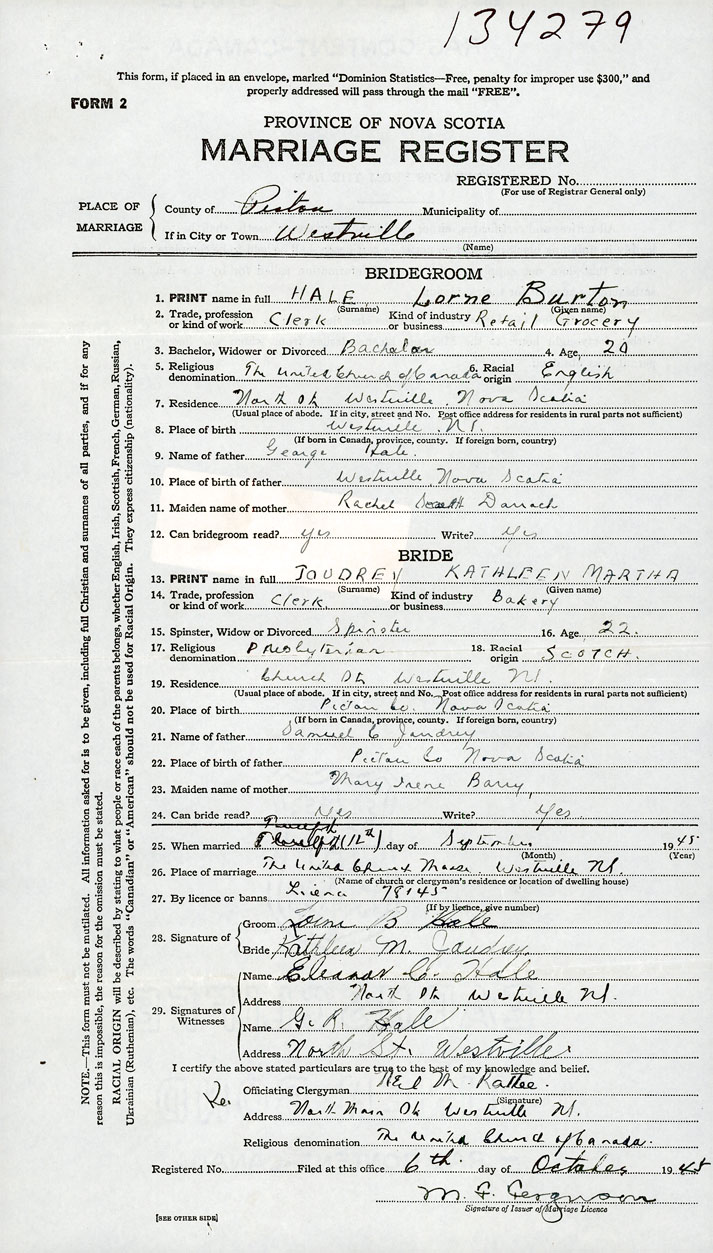 134279
This form, if placed in an envelope, marked "Dominion Statistics—Free, penalty for improper use $300," and
properly addressed will pass through the mail "FREE".
FORM 2
PROVINCE OF NOVA SCOTIA
MARRIAGE REGISTER
REGISTERED No.
(For use of Registrar General only)
PLACE OF MARRIAGE
County of Pictou Municipality of
If in City or Town Westville
(Name)
BRIDEGROOM
1. PRINT name in full HALE Lorne Burton
(Surname) (Given name)
2. Trade, profession or kind of work Clerk Kind of industry or business Retail Grocery
3. Bachelor, Widower or Divorced Bachelor 4. Age 20
5. Religious denomination The United Church of Canada 6. Racial origin English
7. Residence North St Westville Nova Scotia
(Usual place of abode. If in city, street and No. Post office address for residents in rural parts not sufficient)
8. Place of birth Westville N.S.
(If born in Canada, province, county. If foreign born, country)
9. Name of father George Hale.
10. Place of birth of father Westville, Nova Scotia
11. Maiden name of mother Rachel Darrach
12. Can bridegroom read? yes Write? yes
BRIDE
13. PRINT name in full JOUDREY KATHLEEN MARTHA
(Surname) (Given name)
14. Trade, profession or kind of work Clerk Kind of industry or business Bakery
15. Spinster, Widow or Divorced Spinster 16. Age 22.
17. Religious denomination Presbyterian 18. Racial origin SCOTCH.
19. Residence Church St Westville N.S.
(Usual place of abode. If in city, street and No. Post office address for residents in rural parts not sufficient)
20. Place of birth Pictou Co. Nova Scotia
(If born in Canada, province, county. If foreign born, country)
21. Name of father Samuel C Joudrey
22. Place of birth of father Pictou Co Nova Scotia
23. Maiden name of mother Mary Irene Barry
24. Can bride read? Yes Write? Yes
25. When married Twelfth (12th) day of September 1945
(Month) (Year)
26. Place of marriage The United Church Manse, Westville N.S.
(Name of church or clergyman's residence or location of dwelling house)
27. By licence or banns 78145
(If by licence, give number)
28. Signature of Groom Lorne B Hale
Bride Kathleen M. Joudrey
29. Signatures of Witnesses
Name Eleanor C. Hale
Address North St. Westville N.S.
Name G. R. Hale
Address North St. Westville
I certify the above stated particulars are true to the best of my knowledge and belief.
Officiating Clergyman Neil M. Rattee.
(Signature)
Address North Main St. Westville N.S.
Religious denomination The United Church of Canada.
Registered No. Filed at this office 6th day of October 1945
M. F. Ferguson
Signature of Issuer of Marriage Licence
[SEE OTHER SIDE]
NOTE.—This form must not be mutilated. All information asked for is to be given, including full Christian and surnames of all parties, and if for any
reason this is impossible, the reason for the omission must be stated.
RACIAL ORIGIN will be described by stating to what people or race each of the parents belongs, whether English, Irish, Scottish, French, German, Russian,
Ukrainian (Ruthenian), etc. The words "Canadian" or "American" should not be used for Racial Origin. They express citizenship (nationality).